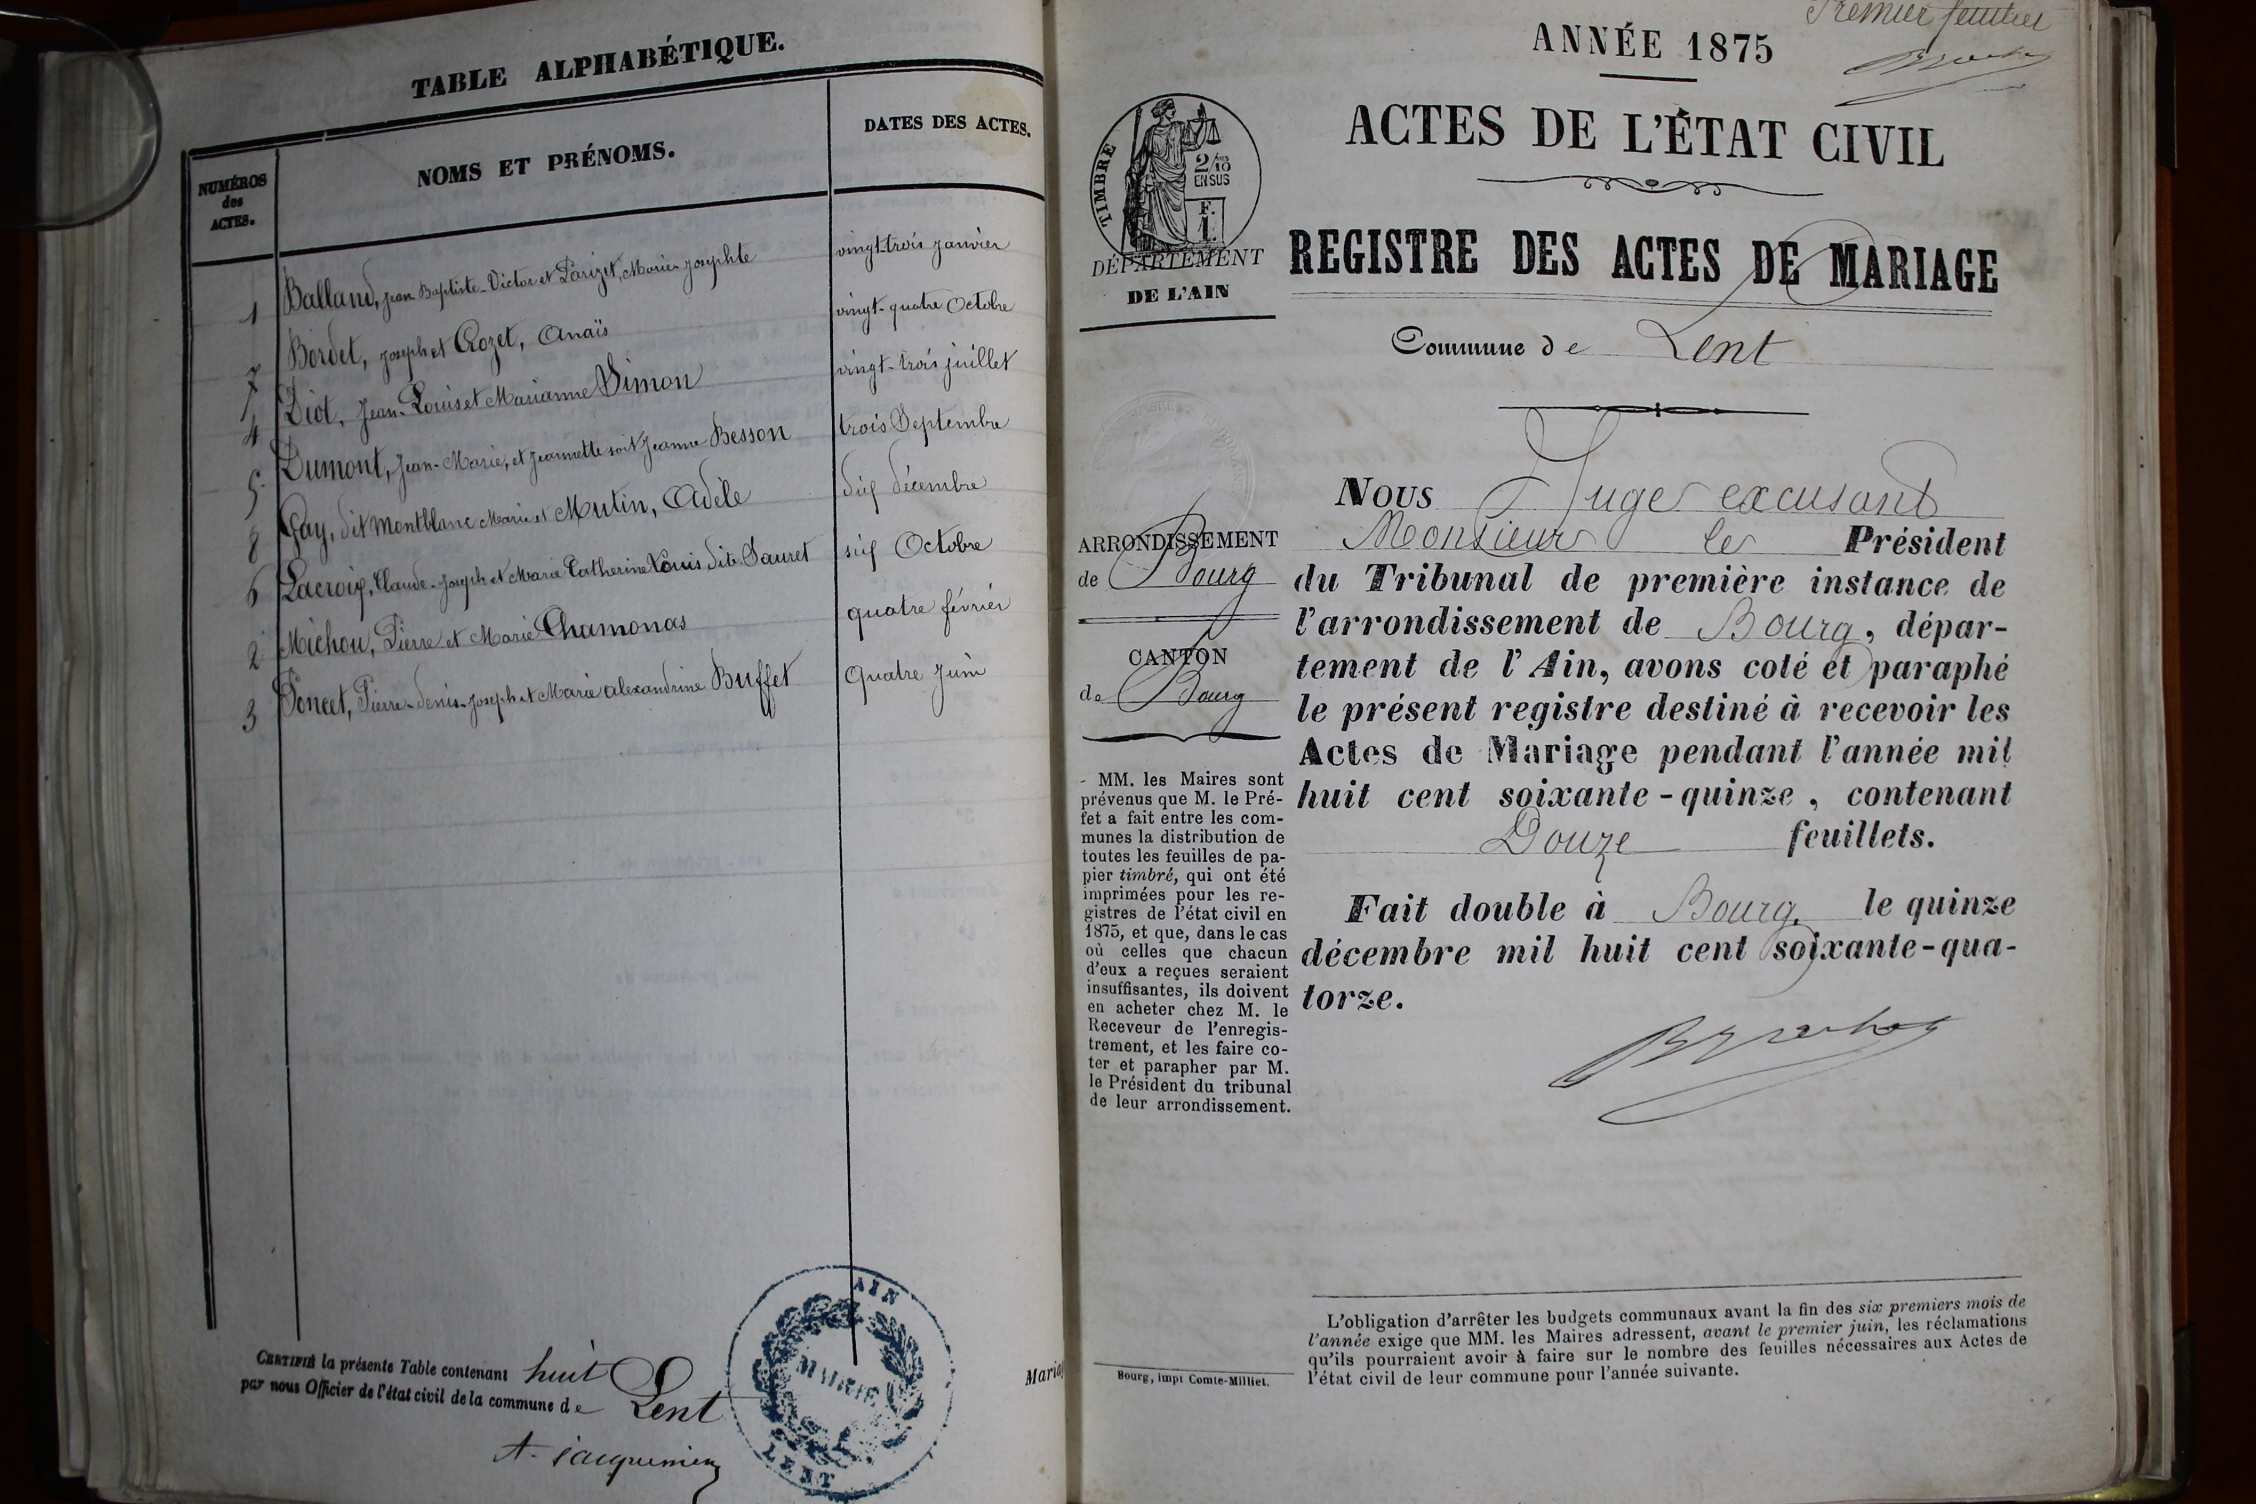 TABLE ALPHABÉTIQUE.
NUMÉROS
des
ACTES.
NOMS ET PRÉNOMS.
DATES DES ACTES.
1 Balland, Jean Baptiste-Victor et Parizet, Marie-Josephte vingt-trois janvier
7 Bordet, Joseph et Crozet, Anaïs vingt-quatre Octobre
4 Diot, Jean-Louis et Marianne Simon vingt-trois juillet
5 Dumont, Jean-Marie, et Jeannette soit Jeanne Besson trois Septembre
8 Gay, dit Montblanc Marie et Mutin, Adèle dix décembre
6 Lacroix, Claude-Joseph et Marie Catherine Louis dite Sauret six Octobre
2 Michon, Pierre et Marie Chamonas quatre février
3 Poncet, Pierre-Denis-Joseph et Marie Alexandrine Buffet quatre juin
CERTIFIÉ la présente Table contenant huit
par nous Officier de l'état civil de la commune de Lent
A. Jacquemin
AIN
MAIRIE
LENT
Mariag
Premier feuillet
ANNÉE 1875
ACTES DE L'ÉTAT CIVIL
TIMBRE
2/10
EN SUS
F.
1.
DÉPARTEMENT
DE L'AIN
REGISTRE DES ACTES DE MARIAGE
Commune de Lent
ARRONDISSEMENT
de Bourg
CANTON
de Bourg
- MM. les Maires sont
prévenus que M. le Pré-
fet a fait entre les com-
munes la distribution de
toutes les feuilles de pa-
pier timbré, qui ont été
imprimées pour les re-
gistres de l'état civil en
1875, et que, dans le cas
où celles que chacun
d'eux a reçues seraient
insuffisantes, ils doivent
en acheter chez M. le
Receveur de l'enregis-
trement, et les faire co-
ter et parapher par M.
le Président du tribunal
de leur arrondissement.
NOUS Juge excusant
Monsieur le Président
du Tribunal de première instance de
l'arrondissement de Bourg, dépar-
tement de l'Ain, avons coté et paraphé
le présent registre destiné à recevoir les
Actes de Mariage pendant l'année mil
huit cent soixante-quinze, contenant
Douze feuillets.
Fait double à Bourg, le quinze
décembre mil huit cent soixante-qua-
torze.
Bourg, impr Comte-Milliet.
L'obligation d'arrêter les budgets communaux avant la fin des six premiers mois de
l'année exige que MM. les Maires adressent, avant le premier juin, les réclamations
qu'ils pourraient avoir à faire sur le nombre des feuilles nécessaires aux Actes de
l'état civil de leur commune pour l'année suivante.